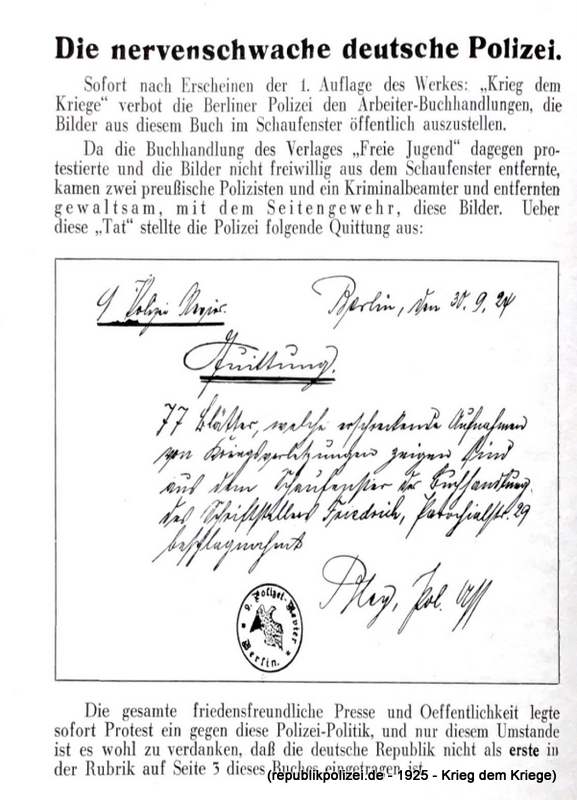 Die nervenschwache deutsche Polizei.
Sofort nach Erscheinen der 1. Auflage des Werkes: „Krieg dem
Kriege“ verbot die Berliner Polizei den Arbeiter-Buchhandlungen, die
Bilder aus diesem Buch im Schaufenster öffentlich auszustellen.
Da die Buchhandlung des Verlages „Freie Jugend“ dagegen pro-
testierte und die Bilder nicht freiwillig aus dem Schaufenster entfernte,
kamen zwei preußische Polizisten und ein Kriminalbeamter und entfernten
gewaltsam, mit dem Seitengewehr, diese Bilder. Ueber
diese „Tat“ stellte die Polizei folgende Quittung aus:
9 Polizei Revier. Berlin, den 30. 9. 24
Quittung.
77 Blätter, welche erschreckende Aufnahmen
von Kriegsverletzungen zeigen sind
aus dem Schaufenster der Buchhandlung
des Schriftstellers Friedrich, Parochialstr. 29
beschlagnahmt
Pol.
9. Polizei-Revier
Berlin.
Die gesamte friedensfreundliche Presse und Oeffentlichkeit legte
sofort Protest ein gegen diese Polizei-Politik, und nur diesem Umstande
ist es wohl zu verdanken, daß die deutsche Republik nicht als erste in
der Rubrik auf Seite 3 dieses Buches eingetragen ist.
(republikpolizei.de - 1925 - Krieg dem Kriege)